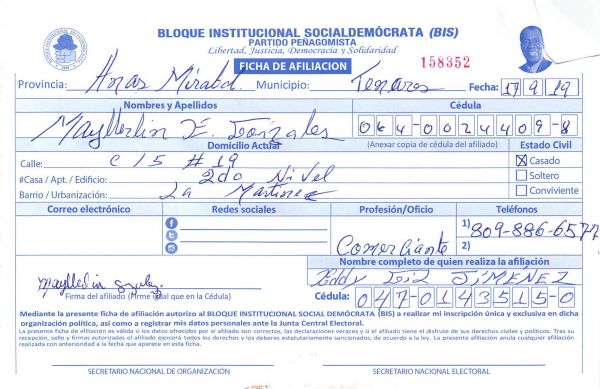 BLOQUE INSTITUCIONAL SOCIALDEMÓCRATA (BIS)
PARTIDO PEÑAGOMISTA
Libertad, Justicia, Democracia y Solidaridad
FICHA DE AFILIACION
158352
Provincia: Municipio: Tenares Fecha: 17 9 19
Nombres y Apellidos Cédula
Mayllerlin E. 064-0024409-8
Domicilio Actual (Anexar copia de cédula del afiliado)
Calle: C/5 #19 Estado Civil
#Casa / Apt. / Edificio: 2do Nivel X Casado
Barrio / Urbanización: La Martinez Soltero
Conviviente
Correo electrónico Redes sociales Profesión/Oficio Teléfonos
Comerciante 1) 809-886-6577
2)
Nombre completo de quien realiza la afiliación
Eddy JIMÉNEZ
Firma del afiliado (Firme igual que en la Cédula) Cédula: 047-0143515-0
Mediante la presente ficha de afiliación autorizo al BLOQUE INSTITUCIONAL SOCIAL DEMÓCRATA (BIS) a realizar mi inscripción única y exclusiva en dicha
organización política, así como a registrar mis datos personales ante la Junta Central Electoral.
La presente ficha de afiliación es válida si los datos ofrecidos por el afiliado son correctos, las declaraciones veraces y si el afiliado tiene el disfrute de sus derechos civiles y políticos. Tras su
recepción, sello y firmas autorizadas el afiliado ejercerá todos los derechos y los deberes estatutariamente sancionados, de acuerdo a la ley. La presente afiliación anula cualquier afiliación
realizada con anterioridad a la fecha que aparece en esta ficha.
SECRETARIO NACIONAL DE ORGANIZACIÓN SECRETARIO NACIONAL ELECTORAL